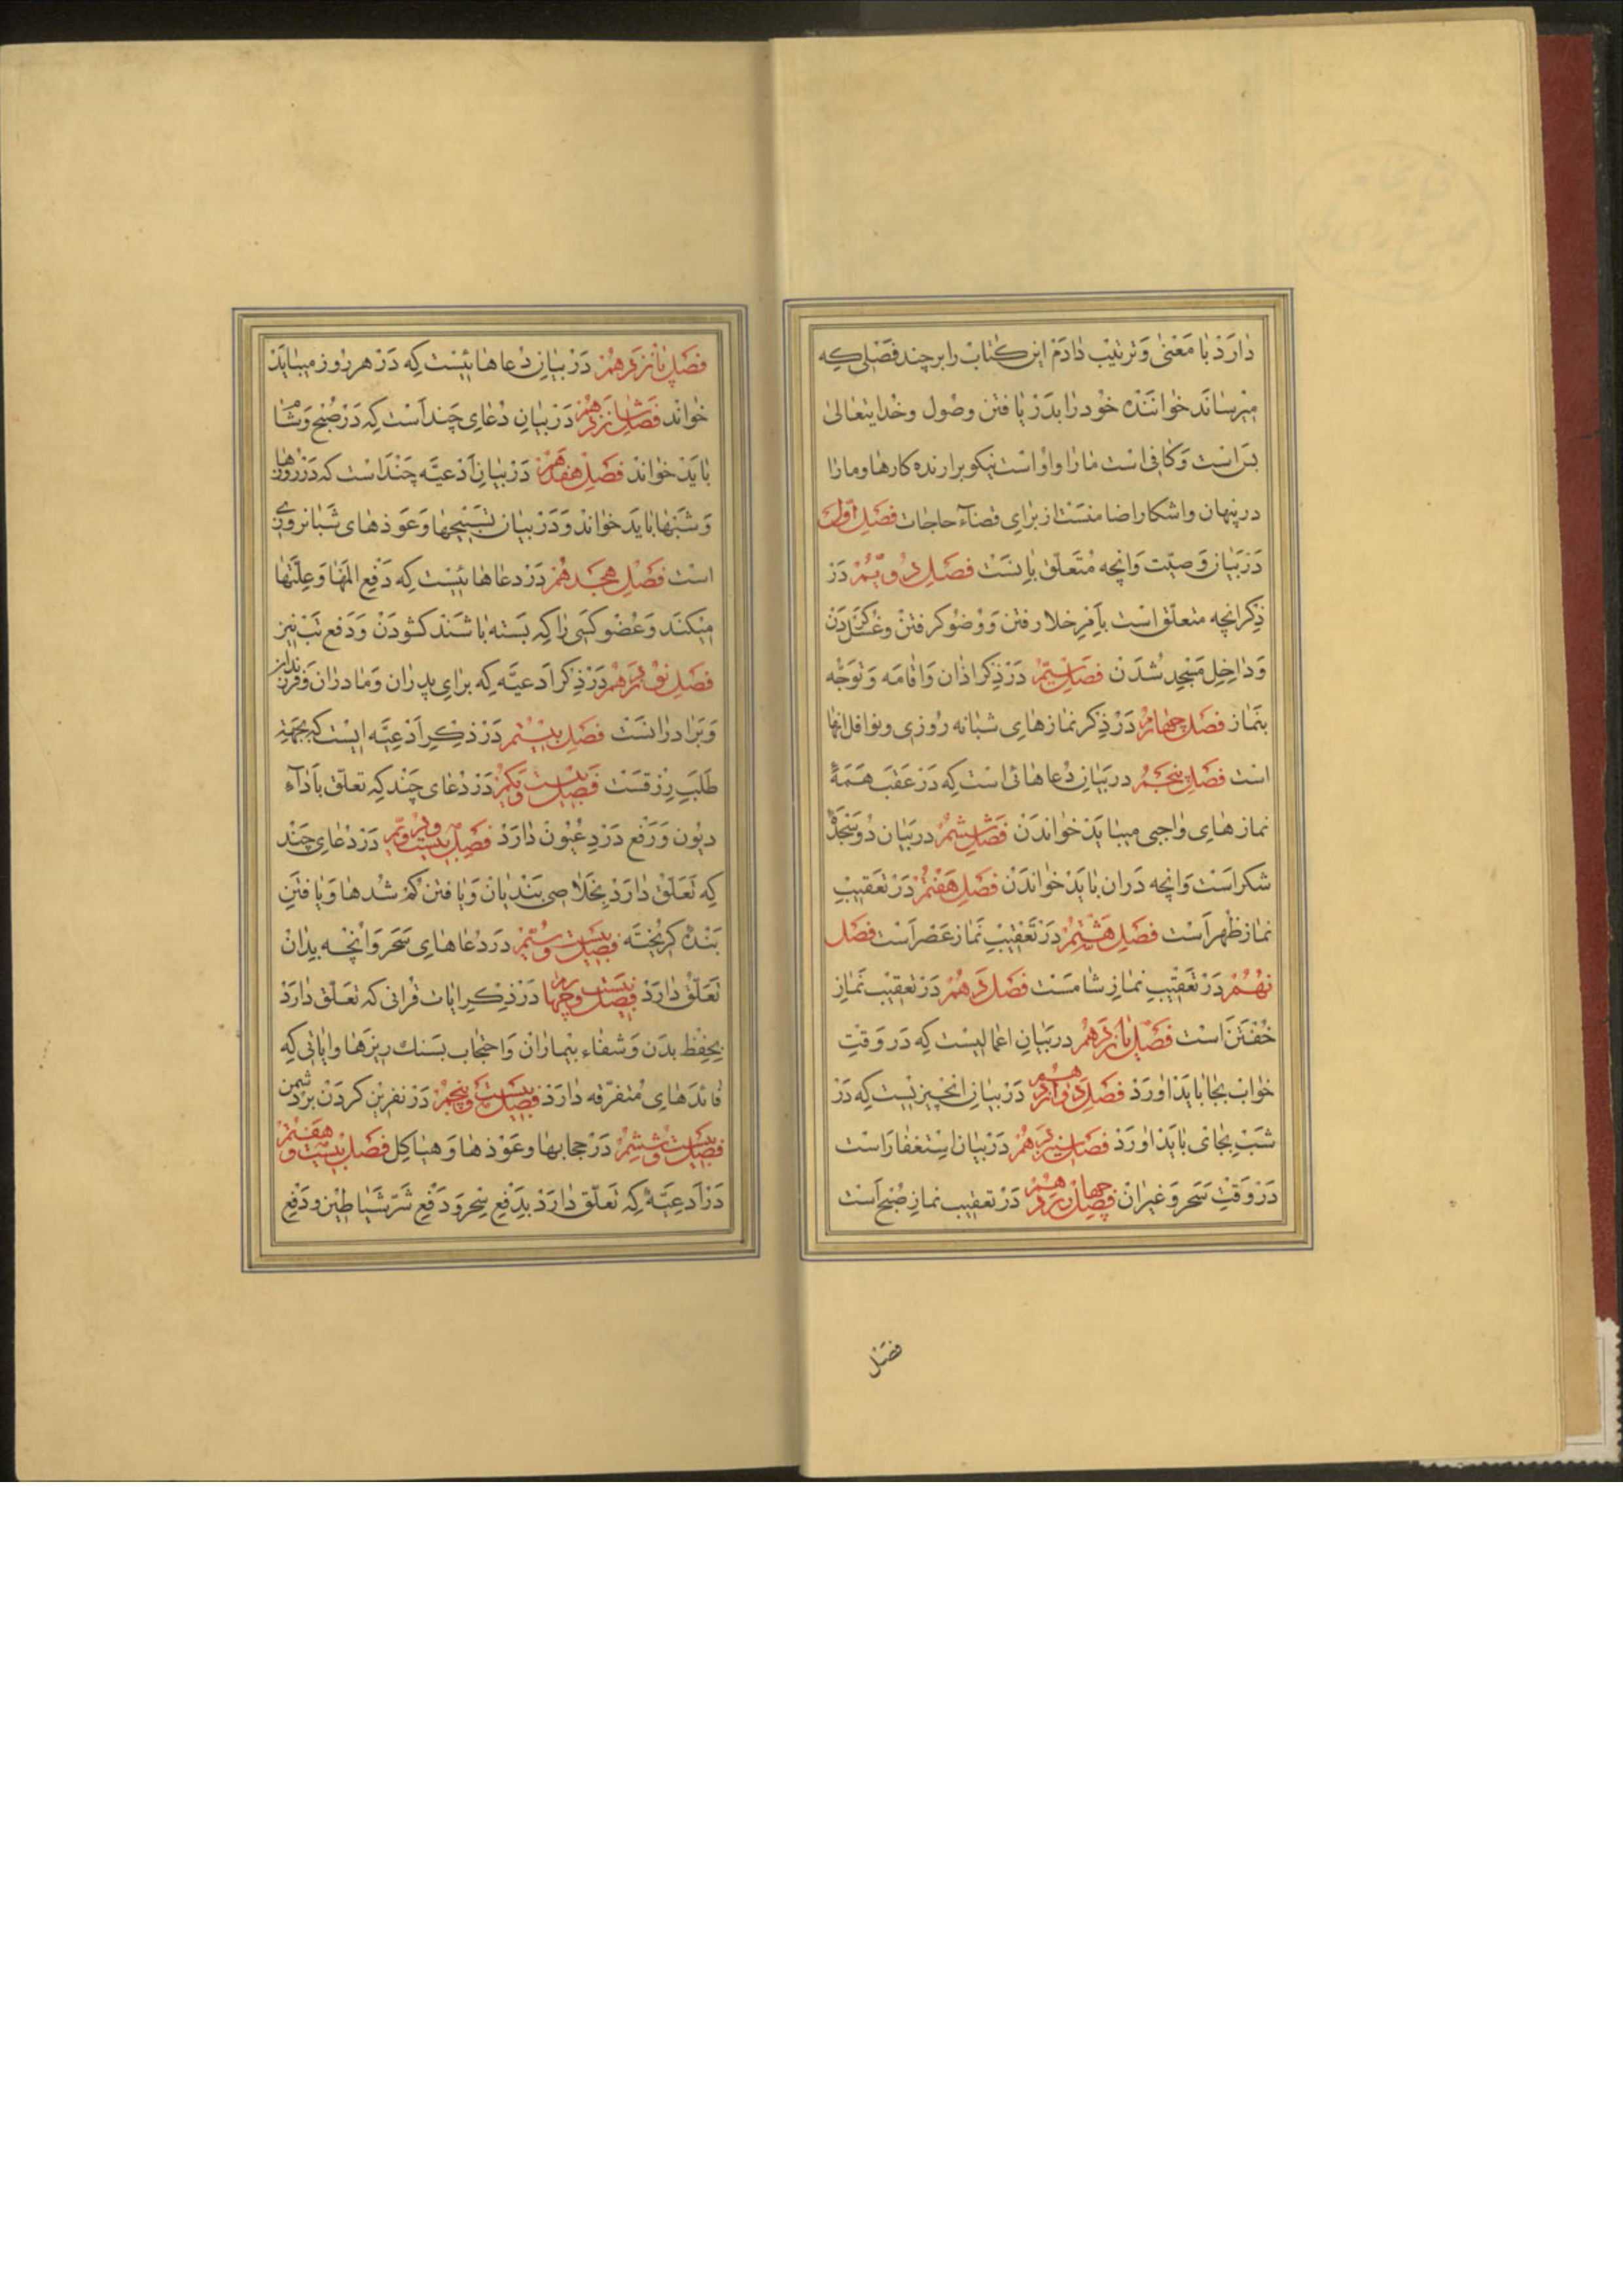 دارد با معنی و ترتیب دادم این کتاب را بر چند فصلی که
میرساند خواننده خود را بدر یافتن وصول وخدایتعالی
بس است و کافی است ما را و او است نیکو برارنده کارها و ما را
در پنهان واشکارا ضا منست از برای قضاء حاجات فصل اول
در بیان وصیت وانچه متعلق باِنست فصل دویم در
ذکر انچه متعلق است باَمر خلا رفتن و وضو کرفتن وغسل کردن
و داخل مسجد شدن فصل سیم در ذکر اذان واقامه وتوجه
بنماز فصل چهارم در ذکر نمازهای شبانه روزی ونوافل انها
است فصل پنجم در بیان دعاهائی است که در عقب همهٔ
نمازهای واجبی میباید خواندن فصل ششم در بیان دو سجدهٔ
شکر است وانچه دران باید خواندن فصل هفتم در تعقیب
نماز ظهر است فصل هشتم در تعقیب نماز عصر است فصل
نهم در تعقیب نماز شامست فصل دهم در تعقیب نماز
خفتن است فصل یازدهم در بیان اعمالیست که در وقت
خواب بجا باید اورد فصل دوازدهم در بیان انچیزیست که در
شب بجای باید اورد فصل سیزدهم در بیان استغفار است
در وقت سحر وغیران فصل چهاردهم در تعقیب نماز صبح است
فصل
فصل پانزدهم در بیان دعاهائیست که در هر روز میباید
خواند فصل شانزدهم در بیان دعای چند است که در صبح وشام
باید خواند فصل هفدهم در بیان ادعیه چند است که در روزها
وشبها باید خواند و در بیان تسبیحها وعوذهای شبانروزی
است فصل هجدهم در دعاهائیست که دفع المها وعلتها
میکند وعضو کسی را که بسته باشند کشودن و دفع تب نیز
فصل نوزدهم در ذکر ادعیه که برای پدران ومادران وفرزندان
وبرادرانست فصل بیستم در ذکر ادعیه ایست که بجهة
طلب رزقست فصل بیست ویکم در دعای چند که تعلق باَداء
دیون ورفع درد عیون دارد فصل بیست ودویم در دعای چند
که تعلق دارد بخلاصی بندیان ویافتن کم شدها ویافتن
بندهٔ کریخته فصل بیست وسیم در دعاهای سحر وانچه بدان
تعلق دارد فصل بیست وچهارم در ذکر ایات قرانی که تعلق دارد
بحفظ بدن وشفاء بیماران واحتجاب بسنک ریزها وایاتی که
فائدهای متفرقه دارد فصل بیست وپنجم در نفرین کردن بر دشمن
فصل بیست وششم در حجابها وعوذها وهیاکل فصل بیست وهفتم
در ادعیهٔ که تعلق دارد بدفع سحر ودفع شر شیاطین ودفع